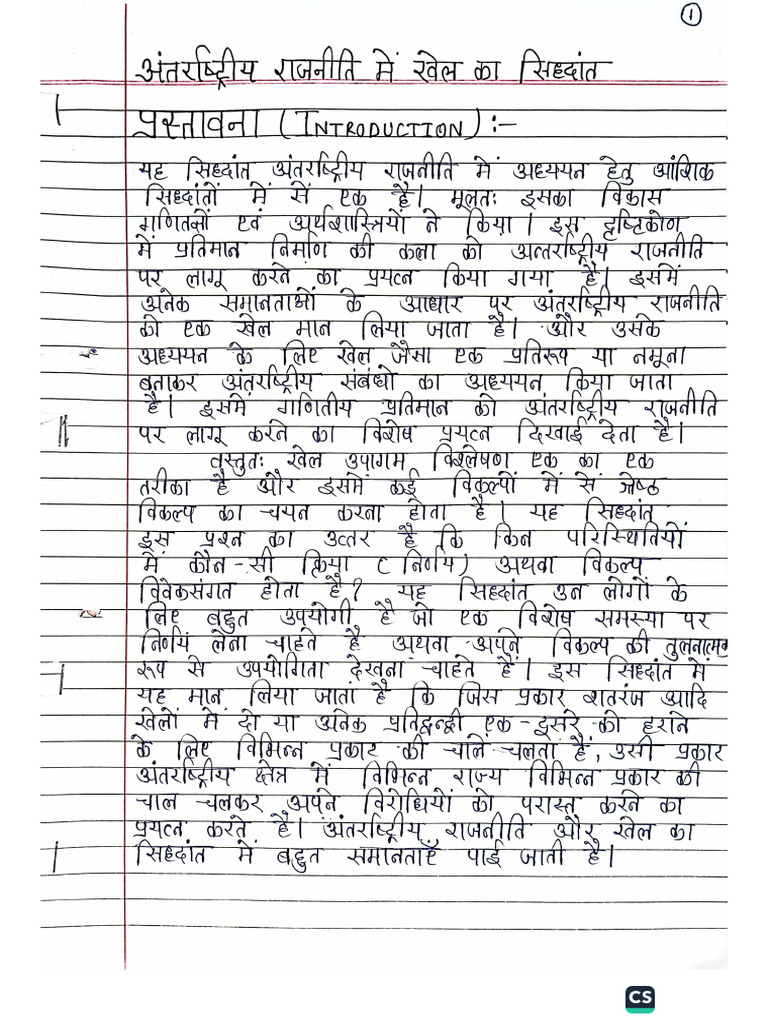 1
अंतर्राष्ट्रीय राजनीति में खेल का सिद्धांत
प्रस्तावना (INTRODUCTION) :-
यह सिद्धांत अंतर्राष्ट्रीय राजनीति में अध्ययन हेतु आंशिक
सिद्धांतों में सें एक है। मूलतः इसका विकास
गणितज्ञों एवं अर्थशास्त्रियों ने किया। इस दृष्टिकोण
में प्रतिमान निर्माण की कला को अन्तर्राष्ट्रीय राजनीति
पर लागू करने का प्रयत्न किया गया है। इसमें
अनेक समानताओं के आधार पर अंतर्राष्ट्रीय राजनीति
को एक खेल मान लिया जाता है। और उसके
अध्ययन के लिए खेल जैसा एक प्रतिरूप या नमूना
बताकर अंतर्राष्ट्रीय संबंधो का अध्ययन किया जाता
है। इसमें गणितीय प्रतिमान को अंतर्राष्ट्रीय राजनीति
पर लागू करने का विशेष प्रयत्न दिखाई देता है।
वस्तुतः खेल उपागम विश्लेषण एक का एक
तरीका है और इसमें कई विकल्पों में सें श्रेष्ठ
विकल्प का चयन करना होता है। यह सिद्धांत
इस प्रश्न का उत्तर है कि किन परिस्थितियों
में कौन-सी क्रिया (निर्णय) अथवा विकल्प
विवेकसंगत होता है? यह सिद्धांत उन लोगों के
लिए बहुत उपयोगी है जो एक विशेष समस्या पर
निर्णय लेना चाहते है अथवा अपने विकल्प की तुलनात्मक
रूप से उपयोगिता देखना चाहते हैं। इस सिद्धांत में
यह मान लिया जाता है कि जिस प्रकार शतरंज आदि
खेलों में दो या अनेक प्रतिद्वन्द्वी एक-दूसरे को हराने
के लिए विभिन्न प्रकार की चाले चलता है, उसी प्रकार
अंतर्राष्ट्रीय क्षेत्र में विभिन्न राज्य विभिन्न प्रकार की
चाल चलकर अपने विरोधियों को परास्त करने का
प्रयत्न करते है। अंतर्राष्ट्रीय राजनीति और खेल का
सिद्धांत में बहुत समानताएँ पाई जाती है।
CS